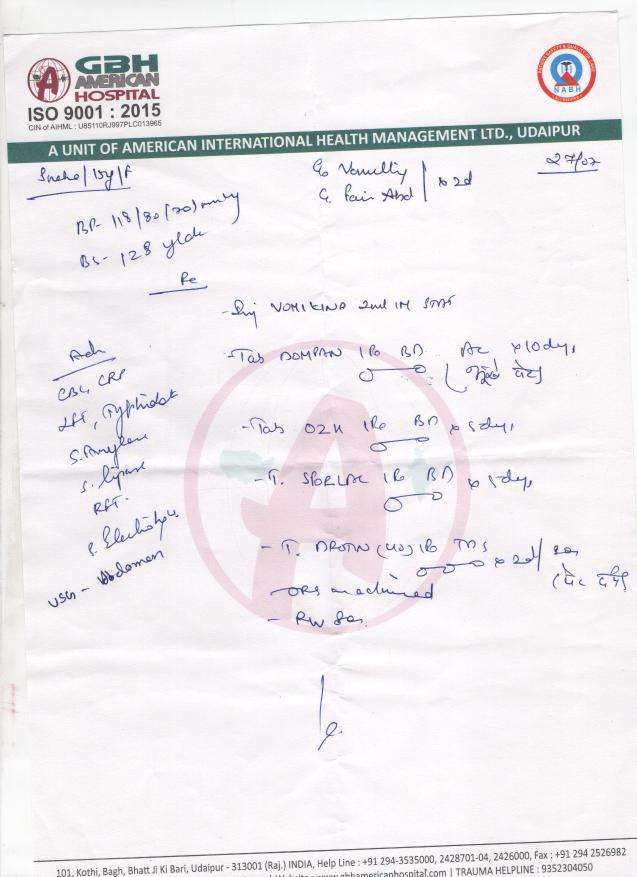 GBH
AMERICAN
HOSPITAL
ISO 9001 : 2015
CIN of AIHML : U85110RJ997PLC013965
NABH
A UNIT OF AMERICAN INTERNATIONAL HEALTH MANAGEMENT LTD., UDAIPUR
27/02
Sneha/15y/F
Pain Abd x 2d
BP- 118/80
BS- 128
Rx
Inj VOMIKIND 2ml IM STAT
Adv
- Tab DOMPAN BD AC x 10 day
CBC, CRP
LFT, Typhidot
- Tab O2H BD x 5 day
S. Amylase
S. Lipase
- T. SPORLAC BD x 5 day
RFT
S. Electrolytes
- T. DROTIN (40) TDS x 2d / SOS
USG - Abdomen
ORS
- R/W SOS
101, Kothi, Bagh, Bhatt Ji Ki Bari, Udaipur - 313001 (Raj.) INDIA, Help Line : +91 294-3535000, 2428701-04, 2426000, Fax : +91 294 2526982
www.gbhamericanhospital.com | TRAUMA HELPLINE : 9352304050